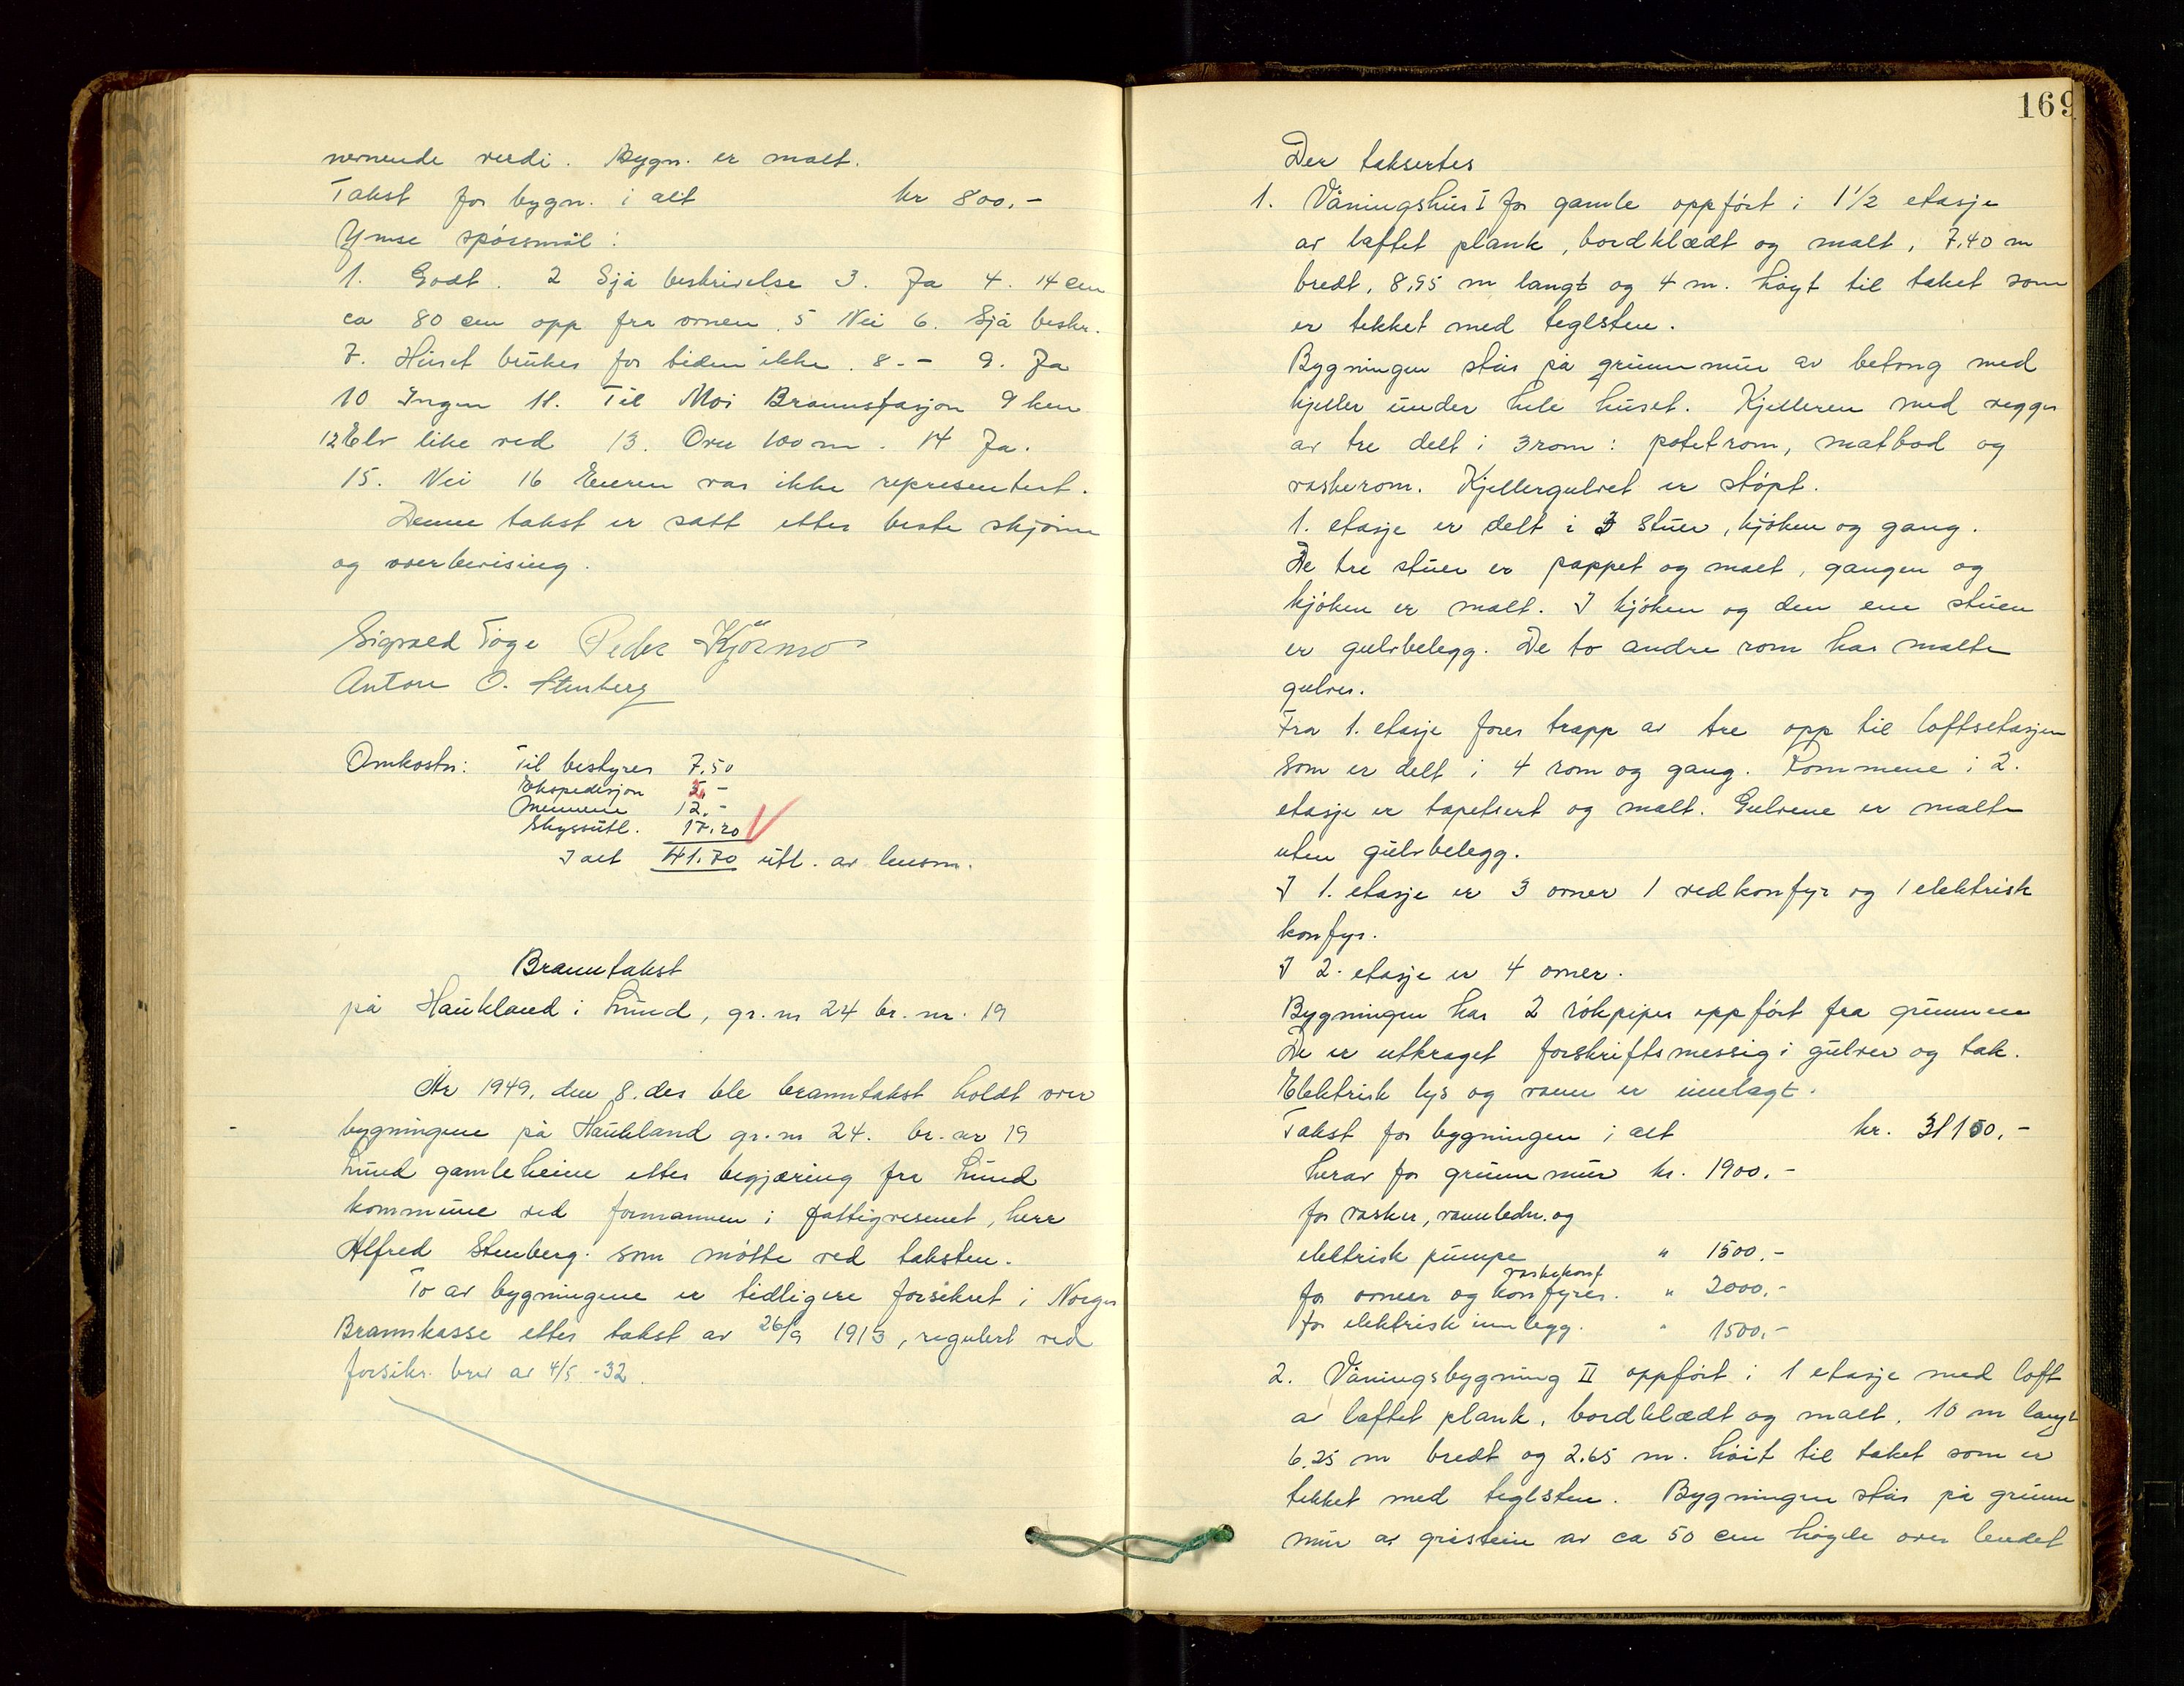 nevnende verdi. Bygn. er malt.
Takst for bygn. i alt kr 800.-
Ymse spörsmål:
1. Godt. 2 Sjå beskrivelse 3. Ja 4. 14 cm
ca 80 cm opp fra ovnen. 5 Nei 6. Sjå beskr.
7. Huset brukes for tiden ikke. 8. - 9. Ja
10 Ingen 11. Til Moi Brannstasjon 9 km
12 Elv like ved 13. Over 100 m. 14 Ja.
15. Nei 16 Eieren var ikke representert.
Denne takst er satt etter beste skjönn
og overbevising.
Sigvald Töge Peder Kjörmo
Anton O. Stenberg
Omkostn: Til bestyrer 7.50
Ekspedisjon 5.-
Mennene 12.-
Skyssutl. 17.20
I alt 41.70 utl. av lensm.
Branntakst
på Haukland i Lund, gr. nr 24 br. nr. 19
År 1949, den 8. des ble branntakst holdt over
bygningene på Haukland gr. nr 24. br. nr 19
Lund gamleheim etter begjæring fra Lund
kommune ved formannen i fattigvesenet, herr
Alfred Stenberg som mötte ved taksten.
To av bygningene er tidligere forsikret i Norges
Brannkasse etter takst av 26/9 1913, regulert ved
forsikr. brev av 4/5 -32.
169
Der taksertes
1. Våningshus I for gamle oppfört i 1 1/2 etasje
av laftet plank, bordklædt og malt, 7,40 m
bredt, 8,95 m langt og 4 m. högt til taket som
er tekket med teglsten.
Bygningen står på grunnmur av betong med
kjeller under hele huset. Kjelleren med vegger
av tre delt i 3 rom: potetrom, matbod og
vaskerom. Kjellergulvet er stöpt.
1. etasje er delt i 3 stuer, kjöken og gang.
De tre stuer er pappet og malt, gangen og
kjöken er malt. I kjöken og den ene stuen
er gulvbelegg. De to andre rom har malte
gulver.
Fra 1. etasje förer trapp av tre opp til loftsetasjen
som er delt i 4 rom og gang. Rommene i 2.
etasje er tapetsert og malt. Gulvene er malte
uten gulvbelegg.
I 1. etasje er 3 ovner 1 vedkomfyr og 1 elektrisk
komfyr.
I 2. etasje er 4 ovner.
Bygningen har 2 rökpiper oppfört fra grunnen
De er utkraget forskriftsmessig i gulver og tak.
Elektrisk lys og vann er innlagt.
Takst for bygningen i alt kr. 31150.-
herav for grunnmur kr. 1900.-
for vasker, vannledn. og
elektrisk pumpe " 1500.-
vaskekonf
for ovner og komfyrer. " 2000.-
for elektrisk innlegg. " 1500.-
2. Våningsbygning II oppfört i 1 etasje med loft
av laftet plank, bordklædt og malt, 10 m langt
6,25 m bredt og 2.65 m. höit til taket som er
tekket med teglsten. Bygningen står på grunn
mur av gråstein av ca 50 cm högde over lendet